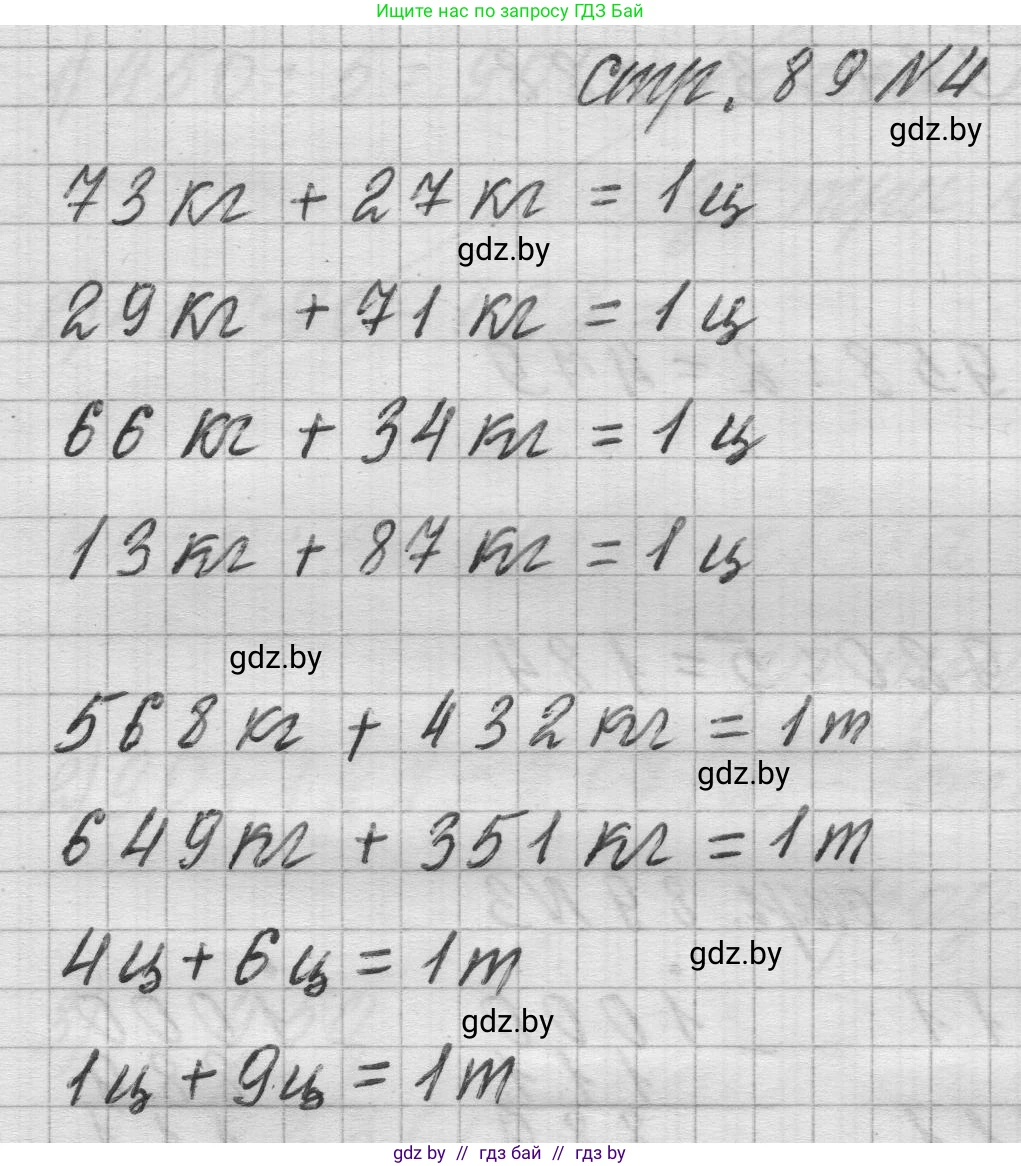 Ищите нас по запросу ГДЗ Бай
стр. 89 №4
gdz.by
73 кг + 27 кг = 1 ц
gdz.by
29 кг + 71 кг = 1 ц
66 кг + 34 кг = 1 ц
13 кг + 87 кг = 1 ц
gdz.by
568 кг + 432 кг = 1 т
gdz.by
649 кг + 351 кг = 1 т
4 ц + 6 ц = 1 т
gdz.by
gdz.by
1 ц + 9 ц = 1 т
gdz.by // гдз бай // гдз by